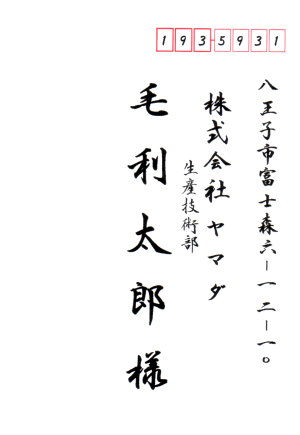 1935931
八王子市富士森六－一二－一〇
株式会社ヤマダ
生産技術部
毛利太郎様